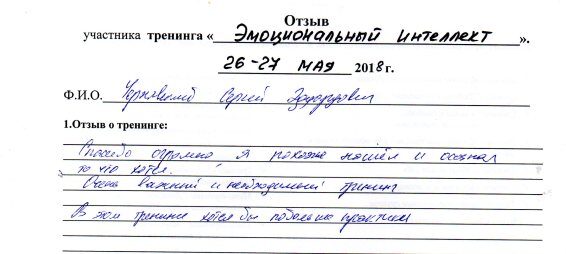 Отзыв
участника тренинга «Эмоциональный интеллект».
26-27 мая 2018 г.
Ф.И.О. Черновский Сергей Эдуардович
1.Отзыв о тренинге:
Спасибо огромно я похоже нашёл и осознал
то что хотел.
Очень важный и необходимый тренинг
В этом тренинге хотел бы побольше практики